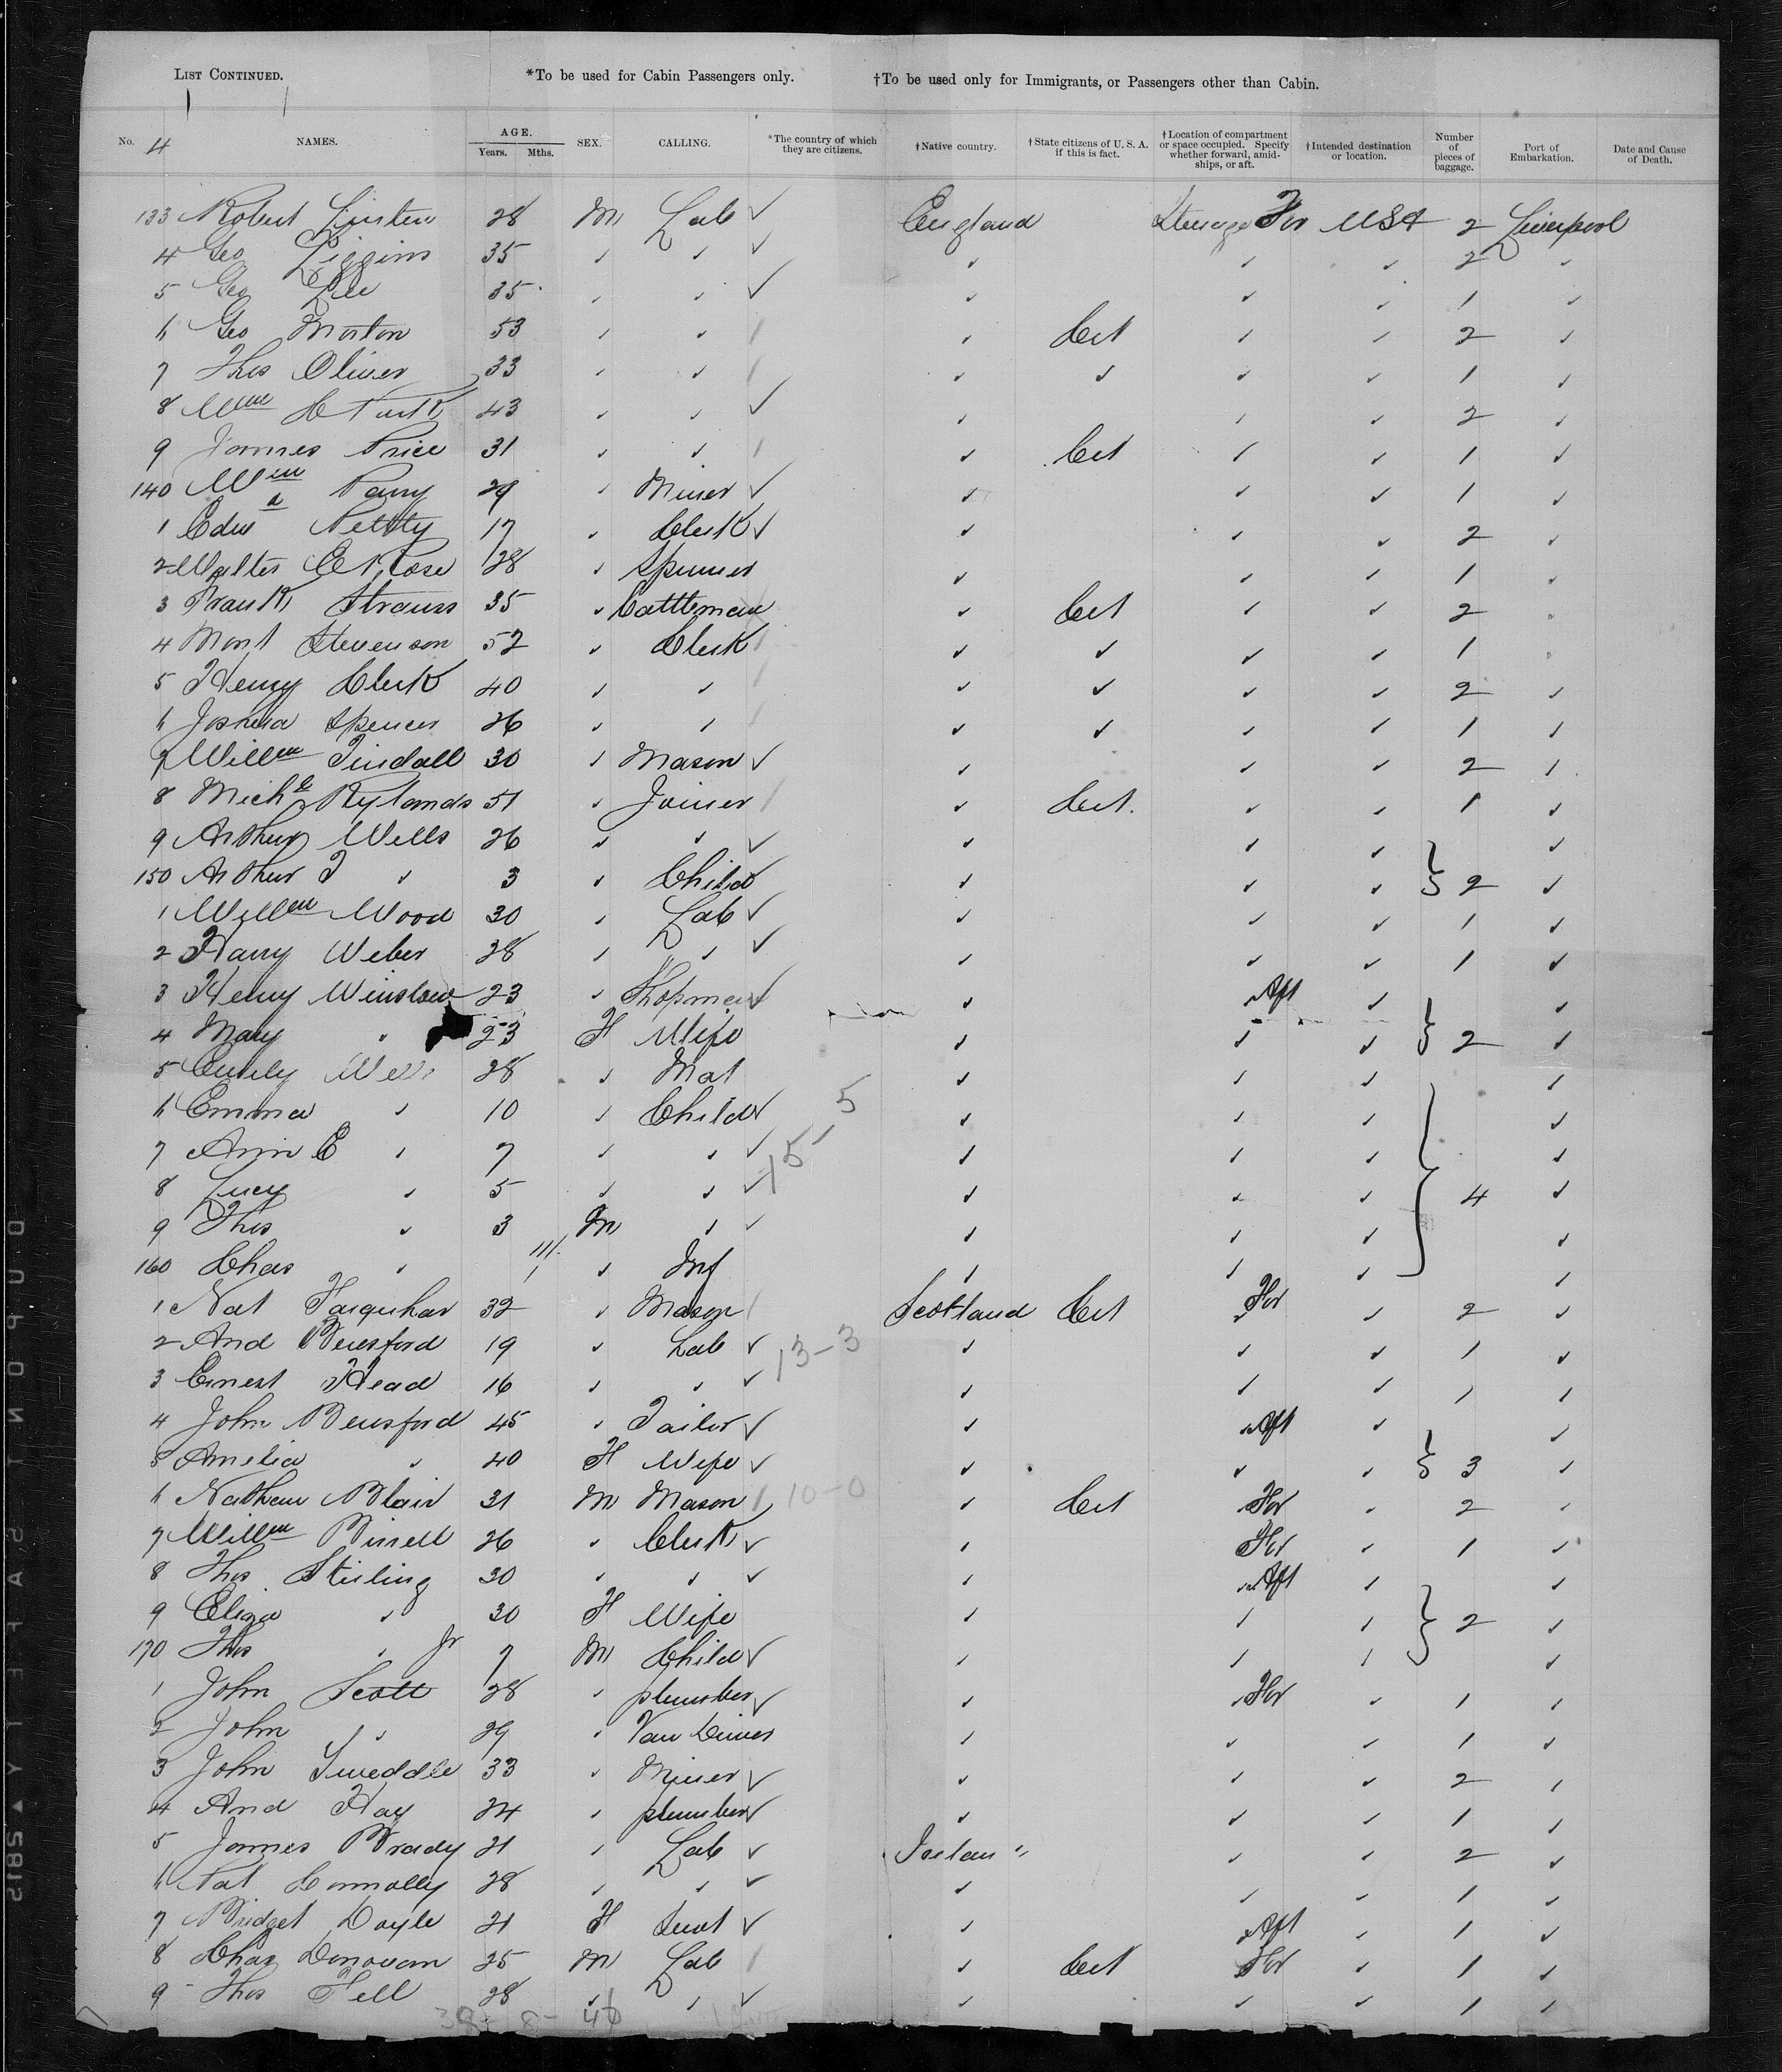 List Continued. *To be used for Cabin Passengers only. †To be used only for Immigrants, or Passengers other than Cabin.
No. 4 NAMES. AGE. Years. Mths. SEX. CALLING. *The country of which they are citizens. †Native country. †State citizens of U. S. A. if this is fact. †Location of compartment or space occupied. Specify whether forward, amidships, or aft. †Intended destination or location. Number of pieces of baggage. Port of Embarkation. Date and Cause of Death.
133 Robert 28 M Lab ✓ England Steerage For USA 2 Liverpool
4 Geo Liggins 35 ✓ 2
5 Geo Lee 35 ✓ 1
6 Geo Morton 53 Cit 2
7 Thos Oliver 33 1
8 Wm 43 ✓ 2
9 James Price 31 Cit 1
140 Wm Parry 29 Miner ✓ 1
1 Edw 17 Clerk ✓ 2
2 Walter Rose 28 Spinner 1
3 Frank Strauss 35 Cattleman Cit 2
4 Mont Stevenson 52 Clerk 1
5 Henry Clerk 40 2
6 Joshua Spencer 26 1
7 Willm Tindall 30 Mason ✓ 2
8 Michl Rylands 51 Joiner Cit. 1
9 Arthur Wells 26 ✓
150 Arthur J 3 Child 2
1 Willm Wood 30 Lab ✓ 1
2 Harry Weber 28 ✓ 1
3 Henry Winslow 23 Shopman ✓ Aft
4 Mary 23 F Wife 2
5 Emily 28 Mat
6 Emma 10 Child ✓ 5
7 Ann E 7 ✓ 15-
8 Lucy 5 ✓ 4
9 Thos 3 M ✓
160 Chas 11/ Inf
1 Nat Farquhar 32 Mason Scotland Cit For 2
2 And Beresford 19 Lab ✓ 13-3 1
3 Ernest Head 16 ✓ 1
4 John Beresford 45 Tailor ✓ Aft
5 Amelia 40 F Wife ✓ 3
6 Nathan Blair 31 M Mason 10-0 Cit For 2
7 Willm Birrell 26 Clerk ✓ For 1
8 Thos Stirling 30 ✓ Aft
9 Eliza 30 F Wife 2
170 Thos Jr 7 M Child ✓
1 John Scott 28 plumber ✓ For 1
2 John 29 Van Driver 1
3 John Tweddle 33 Miner ✓ 2
4 And Hay 24 plumber ✓ 1
5 James Brady 21 Lab ✓ 2
6 Pat Connolly 28 ✓ 1
7 Bridget Doyle 21 F Servt ✓ Aft 1
8 Chas Donovan 25 M Lab Cit For 1
9 Thos Fell 28 ✓ 1